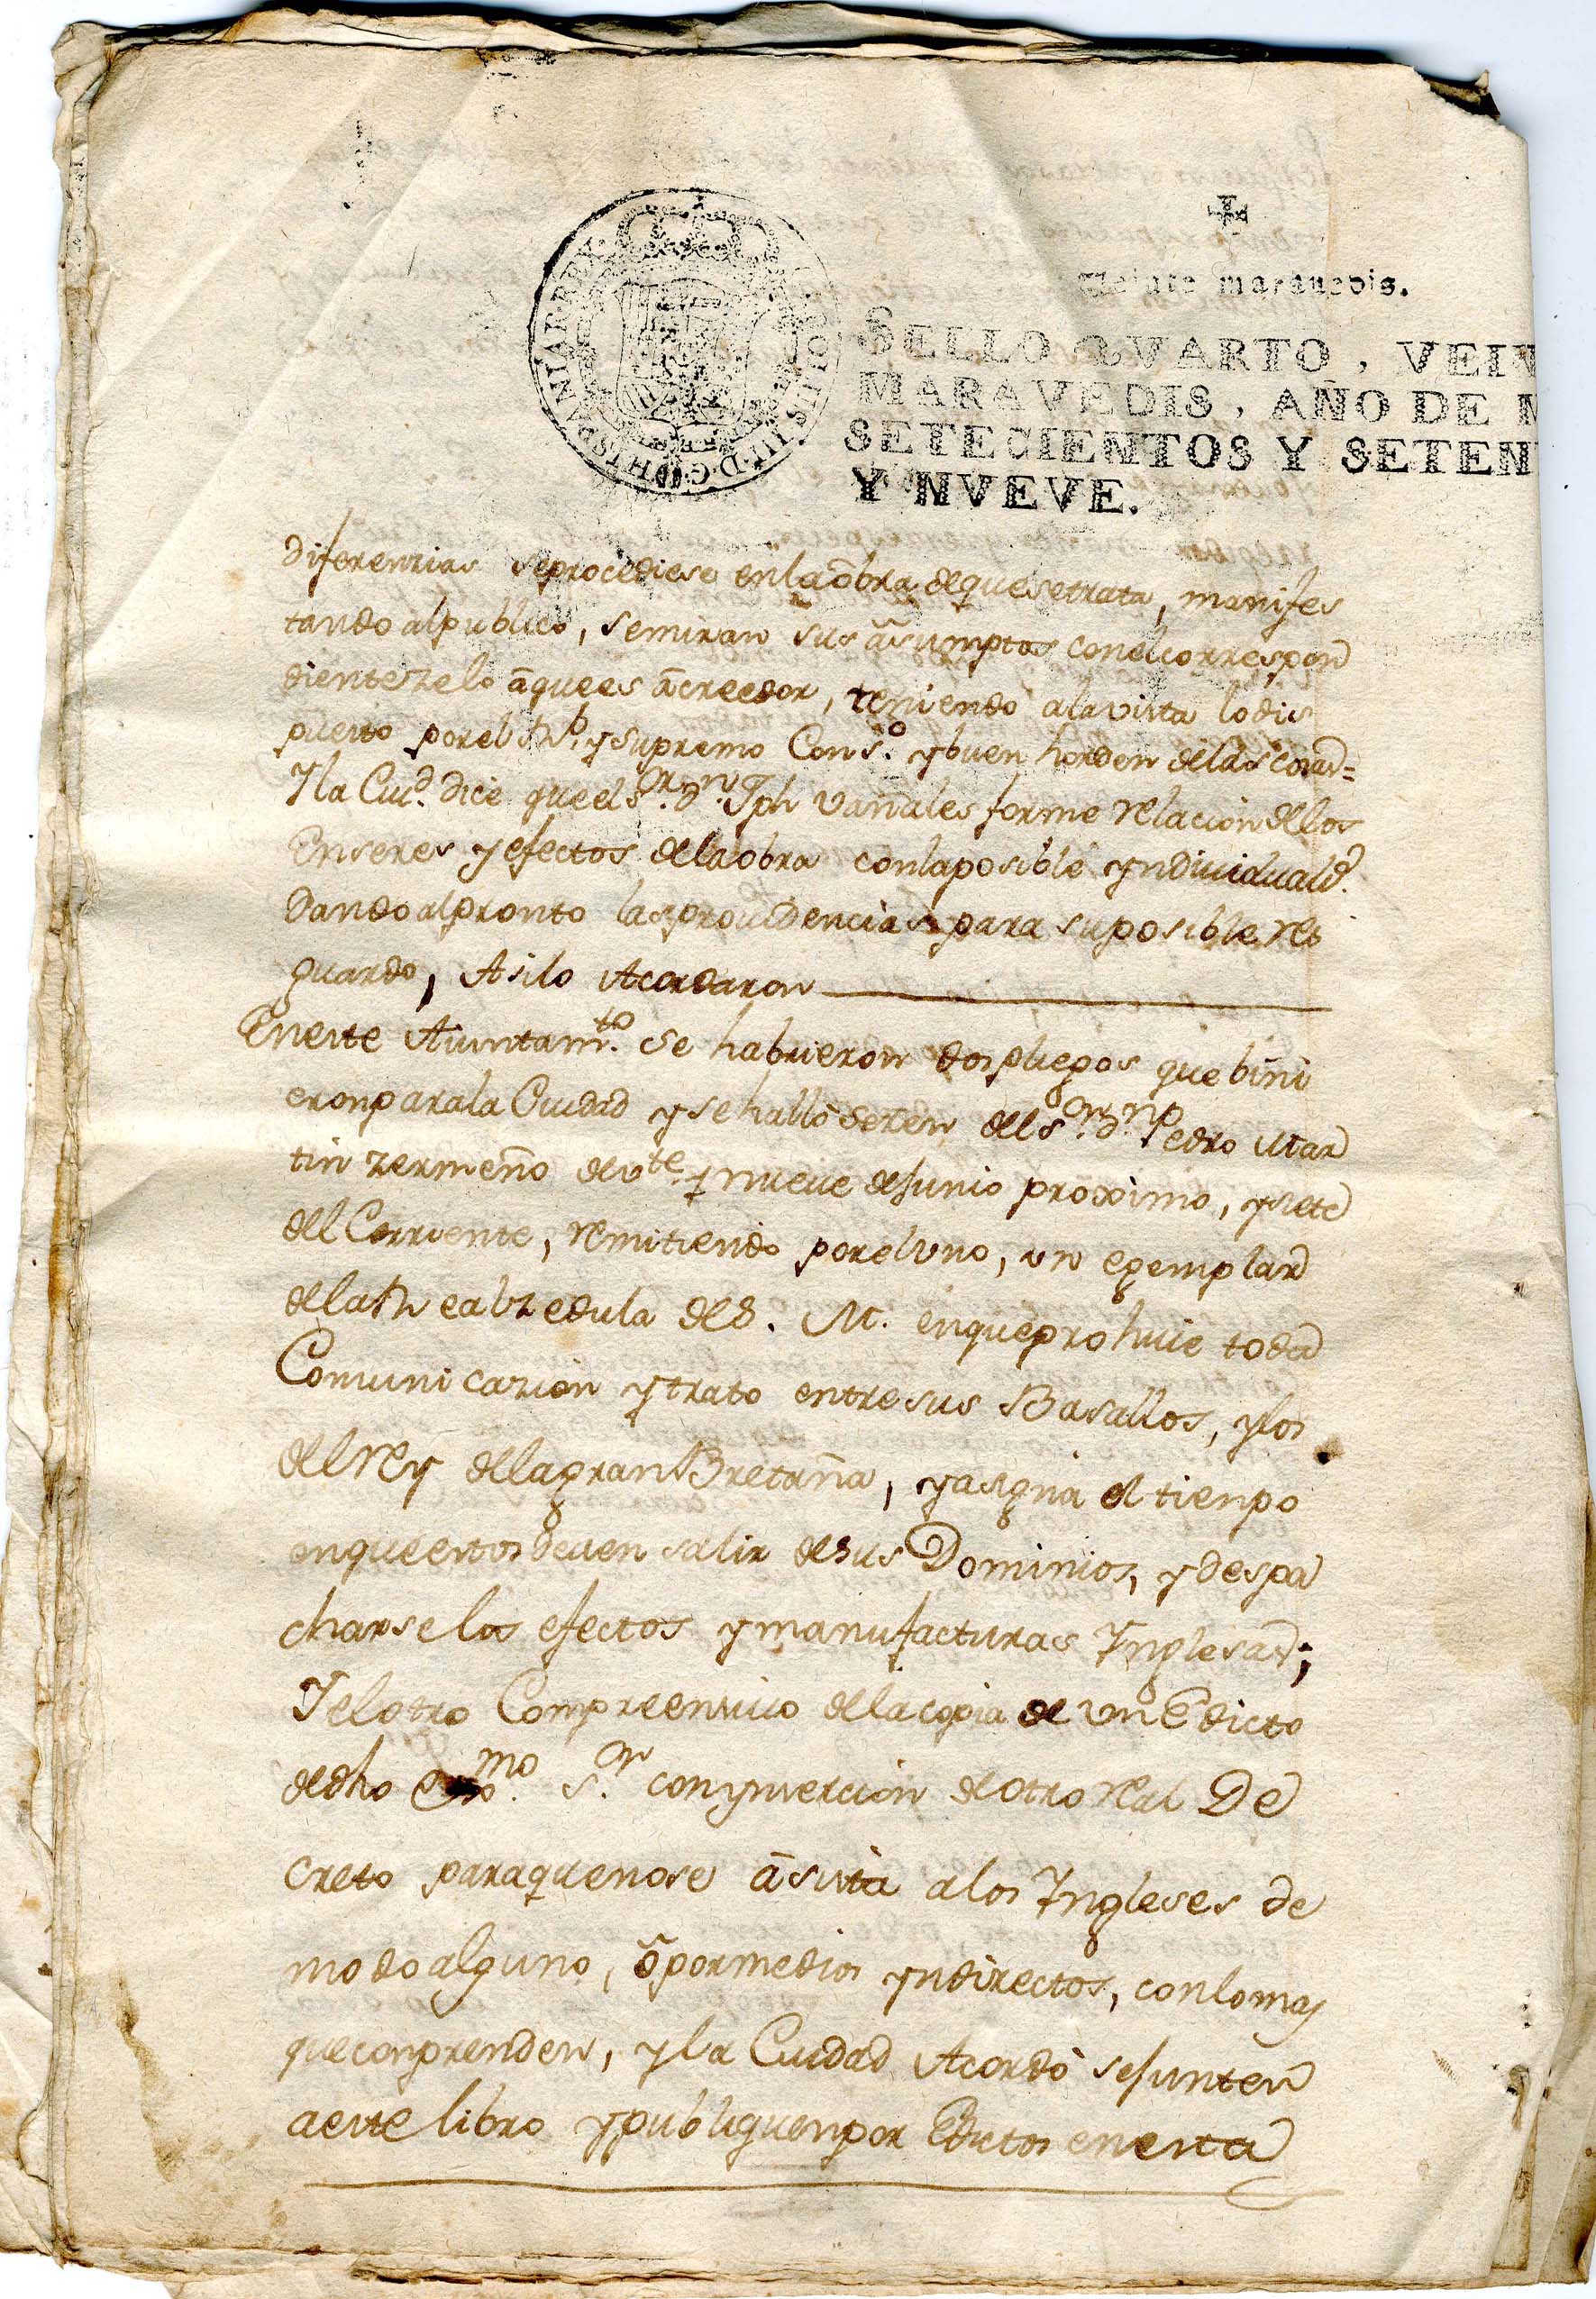 Veinte maravedis.
SELLO QVARTO, VEIN
MARAVEDIS, AÑO DE M
SETECIENTOS Y SETEN
Y NVEVE.
HISPANIAR. REX.
III. D. G.
diferenzias seprocediese enlaõbra dequesetrata, manifes
tando alpublico, semiran sus ãsumptos conelcorrespon
dientezelo ãquees ãcreedor, teniendo alavista lodis
puesto porel Rl. ysupremo Cons.º ybuen horden delas cosas=
Yla Ciu.d dice queel S.or D.n Jph vañales forme relacion delos
Enseres yefectos delaobra conlaposible yndividuald.
Dandoalpronto lasprouidencias para suposible res
guardo, Asilo Acordaron
Eneste Aiuntam.to se habrieron dos pliegos quebini
eronparala Ciudad ysehallò seren del S.or D.n Pedro Mar
tin zermeño dev.te ynueve deJunio proximo, ysiete
del Corriente, remitiendo porelvno, vn egemplar
dela Real zedula de S. M. enqueprohive toda
Comunicazion ytrato entresus Basallos, ylos
del Rey delagran Bretaña, yasigna el tienpo
enqueestos deven salir desus Dominios, ydespa
charselos efectos ymanufacturas Ynglesas;
Yelotro Compreensivo delacopia de vn Edicto
dedho Exmo. S.or conynsercion deotro real De
creto paraquenose ãsista alos Yngleses de
modoalguno, õpormedios yndirectos, conlomas
queconprenden, yla Ciudad Acordò seJunten
aeste libro ypubliquenpor Edictos enesta